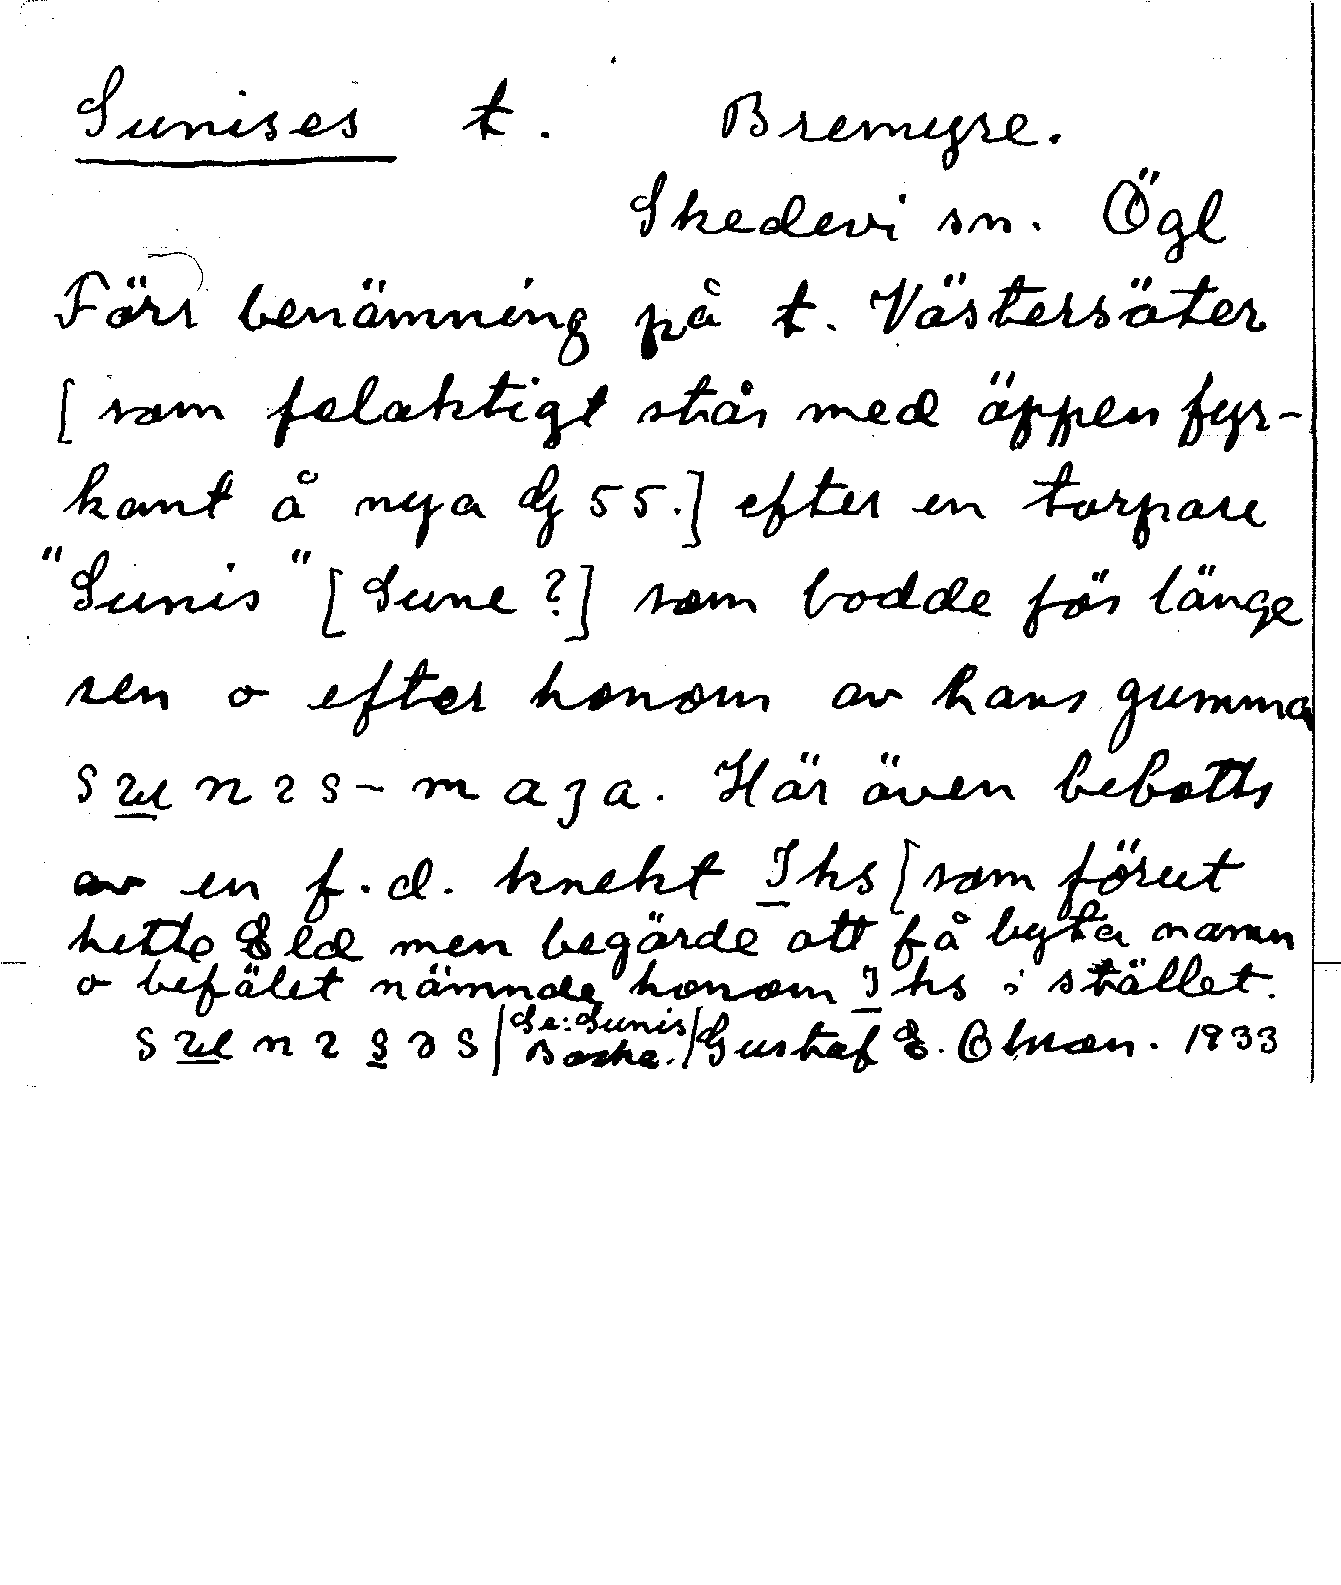 Sunises t. Bremyre.
Skedevi sn. Ögl
Förr benämning på t. Västersäter
[ som felaktigt står med öppen fyr-
kant å nya dj 55.] efter en torpare
"Sunis" [ Sune ?] som bodde för länge
sen o efter honom av hans gumma
s u n ı s - m a j a. Här även bebotts
av en f.d. knekt Ihs [ som förut
hette Eld men begärde att få byta namn
o befälet nämnde honom Ihs i stället.
s u n ı s ə s / Se: Sunis Backe. / Gustaf E. Olsson. 1933